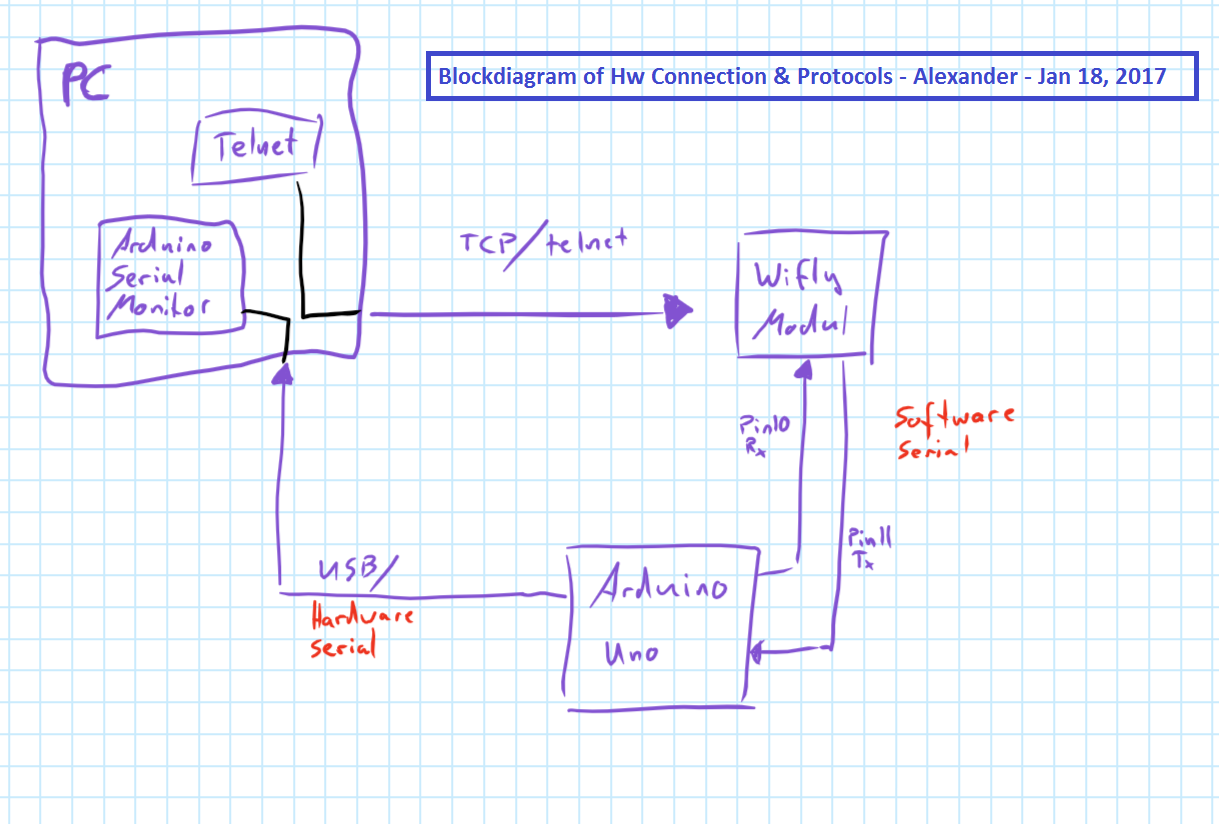 Blockdiagram of Hw Connection & Protocols - Alexander - Jan 18, 2017
PC
Telnet
Arduino
Serial
Monitor
TCP/telnet
Wifly
Modul
Pin10
Rx
Software
Serial
Pin11
Tx
USB/
Hardware
Serial
Arduino
Uno